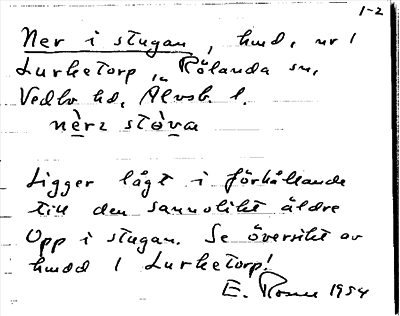 1-2
Ner i stugan, hmd, nr 1
Lurketorp, Rölanda sn,
Vedbo hd, Älvsb. l.
nè̱rɪ stò̱va
Ligger lågt i förhållande
till den sannolikt äldre
Upp i stugan. Se översikt av
hmdd / Lurketorp!
E. Rosen 1954